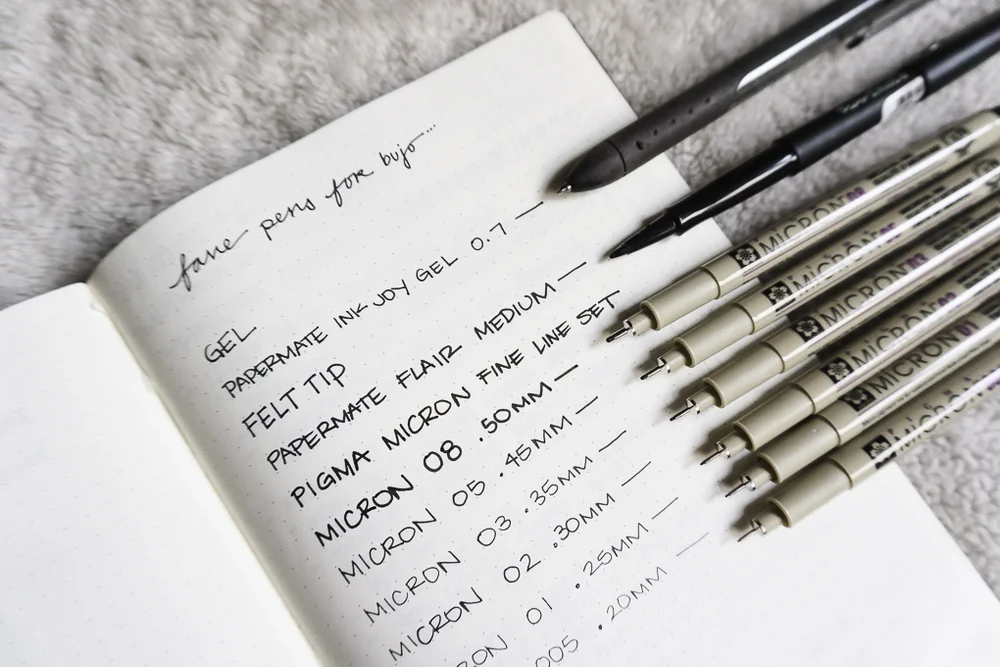 fave pens for bujo...
GEL
PAPERMATE INKJOY GEL 0.7 —
FELT TIP
PAPERMATE FLAIR MEDIUM —
PIGMA MICRON FINE LINE SET
MICRON 08 .50MM —
MICRON 05 .45MM —
MICRON 03 .35MM —
MICRON 02 .30MM —
RON 01 .25MM —
005 .20MM —
MICRON 08
MICRON
MICRON
MICRON
MICRON 01
MICRON